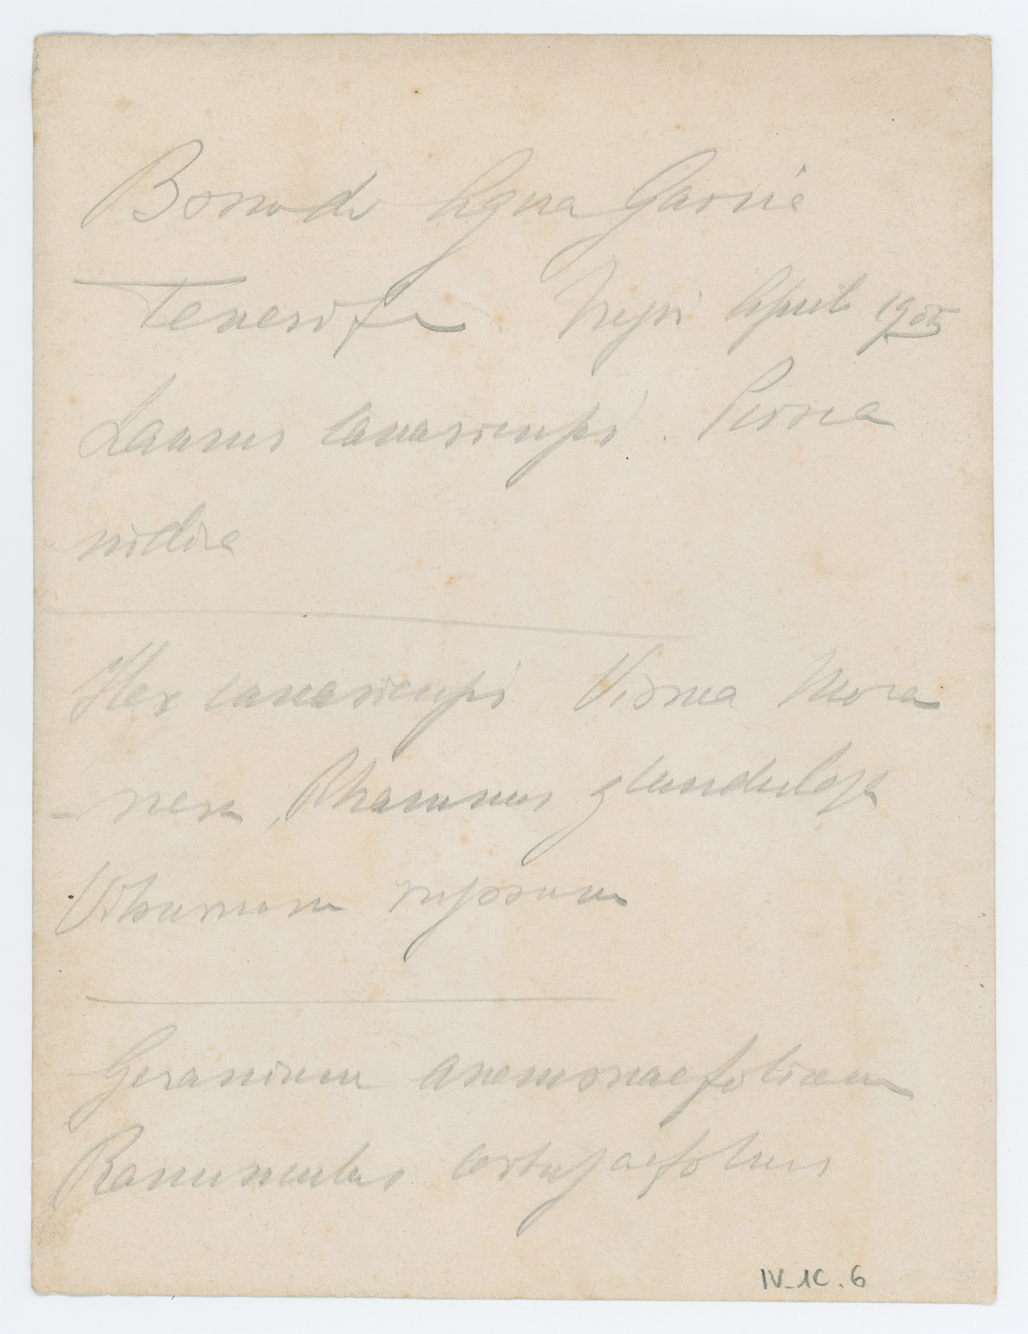 Bosco de Agua Garcie
Tenerife. April 1905
Laurus canariensis. Persea
indica
Ilex canariensis Visnea Mocanera, Rhamnus glandulosa
Viburnum rugosum
Geranium anemonaefolium
Ranunculus cortusaefolius
IV-1C.6